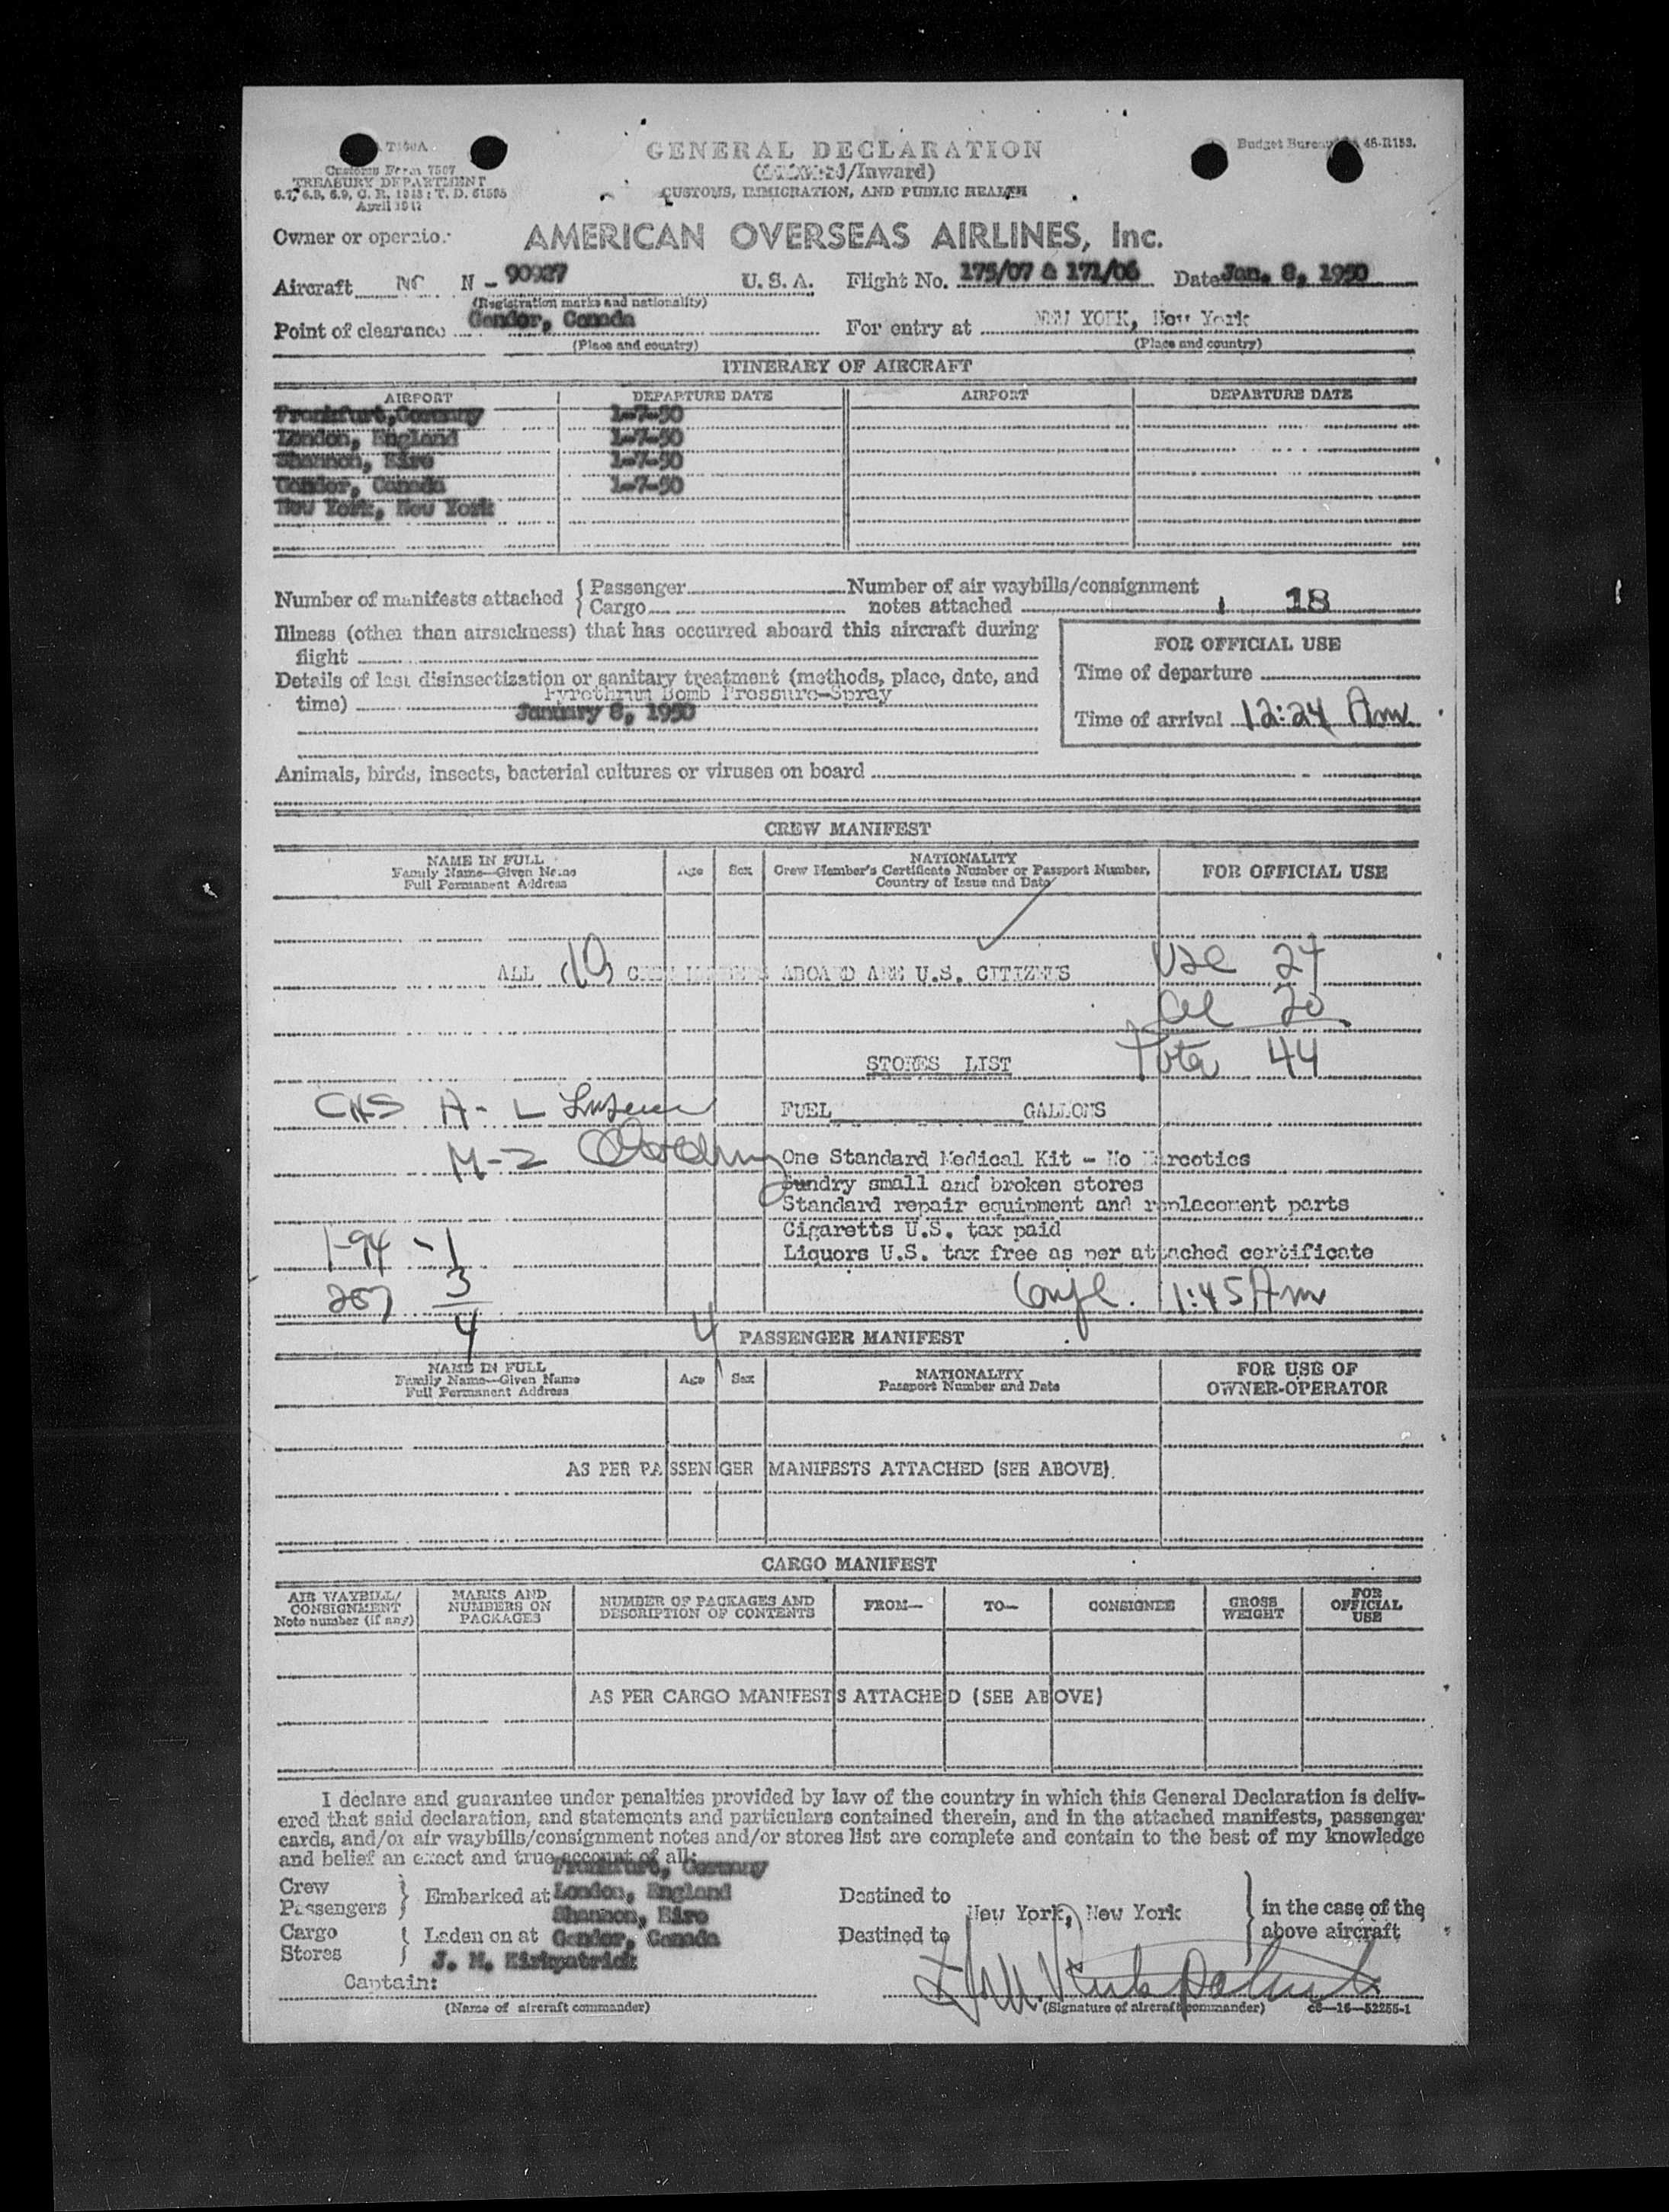 Customs Form 7507
TREASURY DEPARTMENT
April 1947
GENERAL DECLARATION
Budget Bureau 46-R153.
/Inward)
CUSTOMS, IMMIGRATION, AND PUBLIC HEALTH
Owner or operator
AMERICAN OVERSEAS AIRLINES, Inc.
Aircraft NC N - 90927 U. S. A. Flight No. 175/07 & 171/06 Date Jan. 8, 1950
(Registration marks and nationality)
Point of clearance Gander, Canada For entry at NEW YORK, New York
(Place and country) (Place and country)
ITINERARY OF AIRCRAFT
AIRPORT DEPARTURE DATE AIRPORT DEPARTURE DATE
Frankfurt, Germany 1-7-50
London, England 1-7-50
Shannon, Eire 1-7-50
Gander, Canada 1-7-50
New York, New York
Number of manifests attached { Passenger Number of air waybills/consignment
Cargo notes attached 18
Illness (other than airsickness) that has occurred aboard this aircraft during
flight
FOR OFFICIAL USE
Time of departure
Time of arrival 12:24 Am
Details of last disinsectization or sanitary treatment (methods, place, date, and
time) Pyrethrum Bomb Pressure-Spray
January 8, 1950
Animals, birds, insects, bacterial cultures or viruses on board
CREW MANIFEST
NAME IN FULL Age Sex NATIONALITY FOR OFFICIAL USE
Family Name—Given Name Crew Member's Certificate Number or Passport Number,
Full Permanent Address Country of Issue and Date
ALL (10) CREW MEMBERS ABOARD ARE U.S. CITIZENS
USC 24
Al 20
Total 44
STORES LIST
CHS A - L
FUEL GALLONS
M-Z
One Standard Medical Kit - No Narcotics
Sundry small and broken stores
Standard repair equipment and replacement parts
Cigaretts U.S. tax paid
1-94 - 1
Liquors U.S. tax free as per attached certificate
257 3
Compl. 1:45 Am
4
4
PASSENGER MANIFEST
NAME IN FULL Age Sex NATIONALITY FOR USE OF
Family Name—Given Name Passport Number and Date OWNER-OPERATOR
Full Permanent Address
AS PER PASSENGER MANIFESTS ATTACHED (SEE ABOVE).
CARGO MANIFEST
AIR WAYBILL/ CONSIGNMENT Note number (if any) MARKS AND NUMBERS ON PACKAGES NUMBER OF PACKAGES AND DESCRIPTION OF CONTENTS FROM— TO— CONSIGNEE GROSS WEIGHT FOR OFFICIAL USE
AS PER CARGO MANIFESTS ATTACHED (SEE ABOVE)
I declare and guarantee under penalties provided by law of the country in which this General Declaration is deliv-
ered that said declaration, and statements and particulars contained therein, and in the attached manifests, passenger
cards, and/or air waybills/consignment notes and/or stores list are complete and contain to the best of my knowledge
and belief an exact and true account of all:
Frankfurt, Germany
Crew
Passengers } Embarked at London, England Destined to
Shannon, Eire New York, New York } in the case of the
Cargo
Stores } Laden on at Gander, Canada Destined to above aircraft
J. M. Kirkpatrick
Captain:
J. M. Kirkpatrick
(Name of aircraft commander) (Signature of aircraft commander) c6—16—52255-1